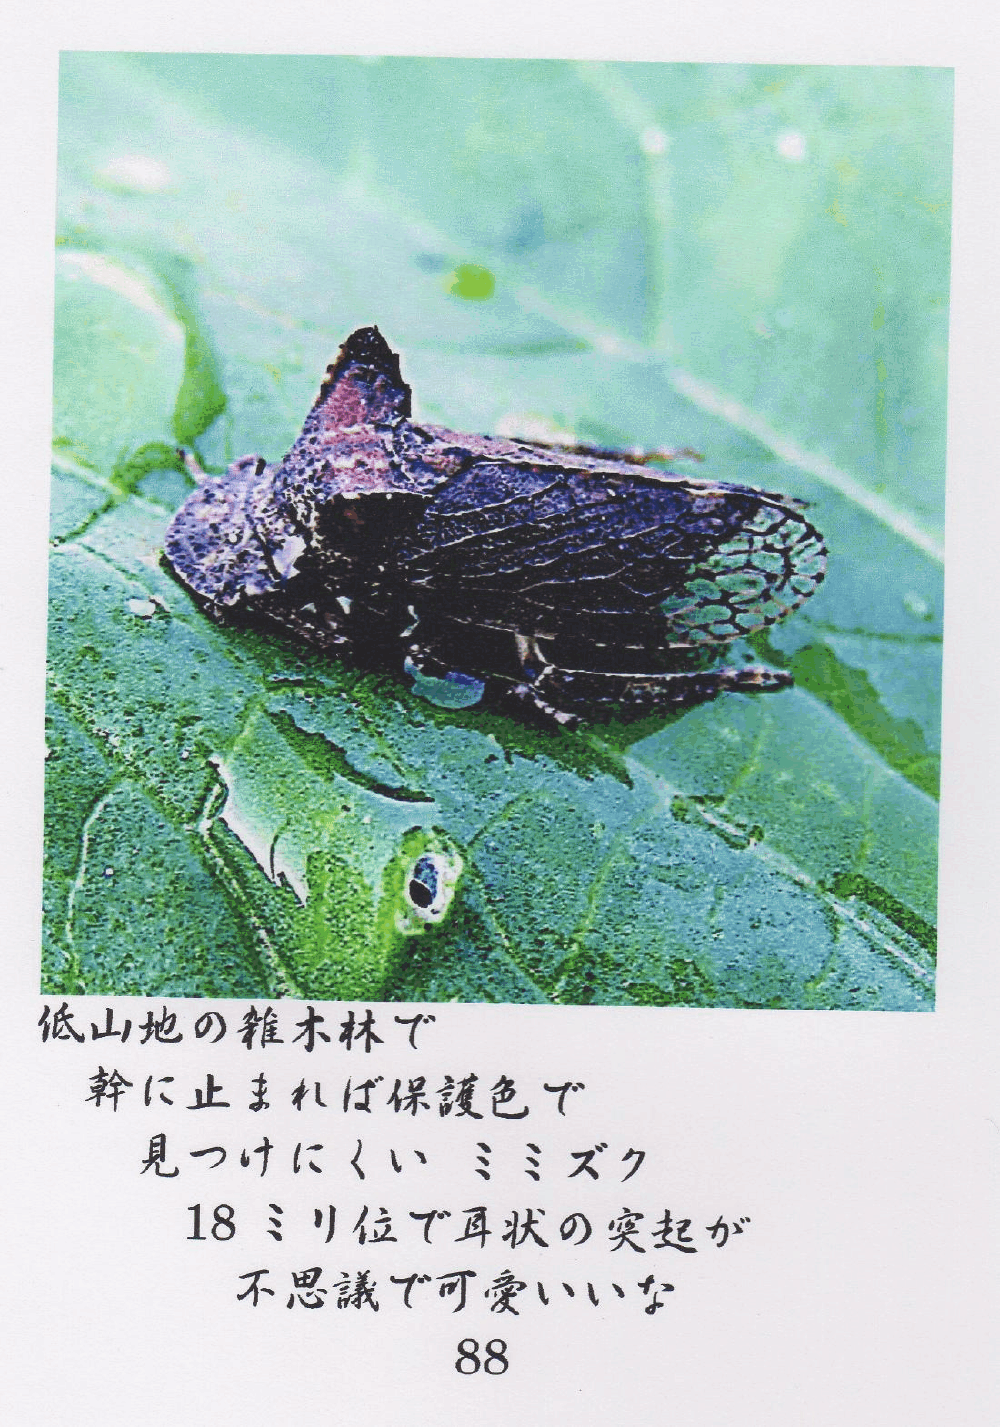 低山地の雑木林で
幹に止まれば保護色で
見つけにくい ミミズク
18 ミリ位で耳状の突起が
不思議で可愛いいな
88